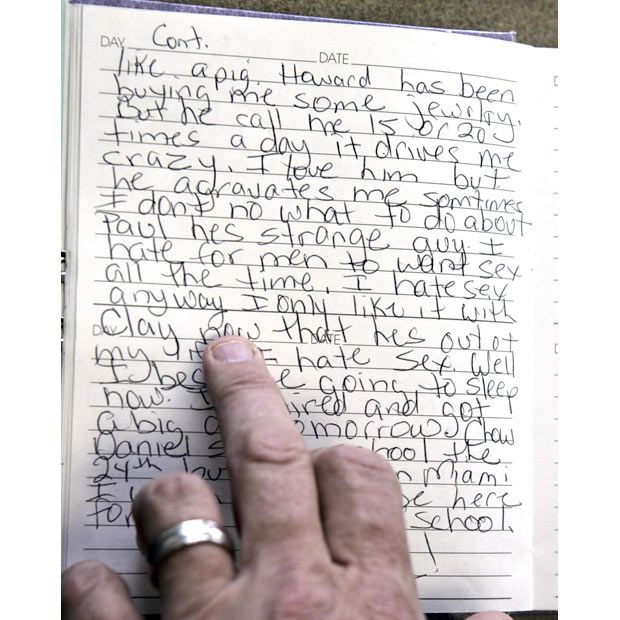 DAY Cont. DATE
like a pig. Howard has been
buying me some jewilry.
But he call me 15 or 20
times a day it drives me
crazy. I love him but
he agravates me somtimes
I dont no what to do about
Paul hes strange guy. I
hate for men to want sex
all the time. I hate sex
anyway I only like it with
Clay now that hes out of
my hate sex. Well
I going to sleep
now. and got
a big tomorrow. Chow
Daniel school the
24th Miami
I here
for school.
!